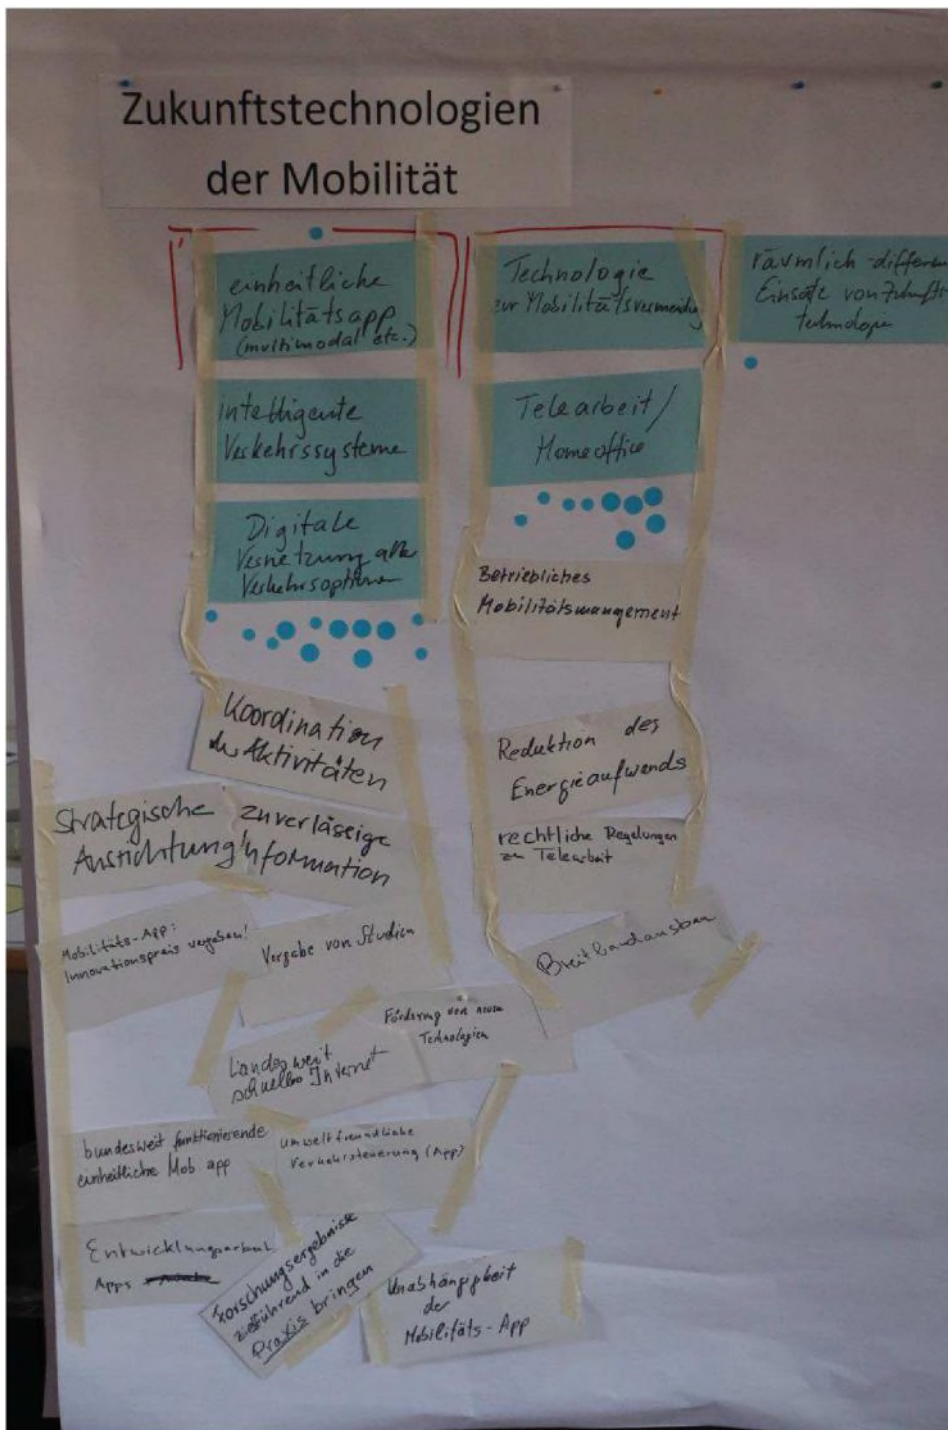 Zukunftstechnologien
der Mobilität
einheitliche
Mobilitätsapp
(multimodal etc.)
intelligente
Verkehrssysteme
Digitale
Vernetzung aller
Verkehrsoptionen
Koordination
der Aktivitäten
Strategische
Ausrichtung
zuverlässige
Information
Mobilitäts-App:
Innovationspreis vergeben!
Vergabe von Studien
Landesweit
schnelles Internet
Förderung von neuen
Technologien
bundesweit funktionierende
einheitliche Mob app
umweltfreundliche
Verkehrsteuerung (App)
Entwicklungsarbeit
Apps
Forschungsergebnisse
zielführend in die
Praxis bringen
Unabhängigkeit
der
Mobilitäts-App
Technologie
zur Mobilitätsvermeidung
Telearbeit/
Homeoffice
Betriebliches
Mobilitätsmanagement
Reduktion des
Energieaufwands
rechtliche Regelungen
zu Telearbeit
Breitbandausbau
räumlich-differen
Einsatz von Zukunfts
technologie